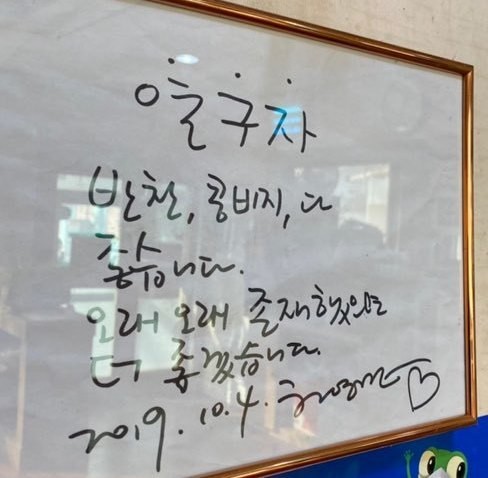 반찬, 콩비지, 다
좋습니다.
오래 오래 존재했으면
더 좋겠습니다.
2019. 10. 4.